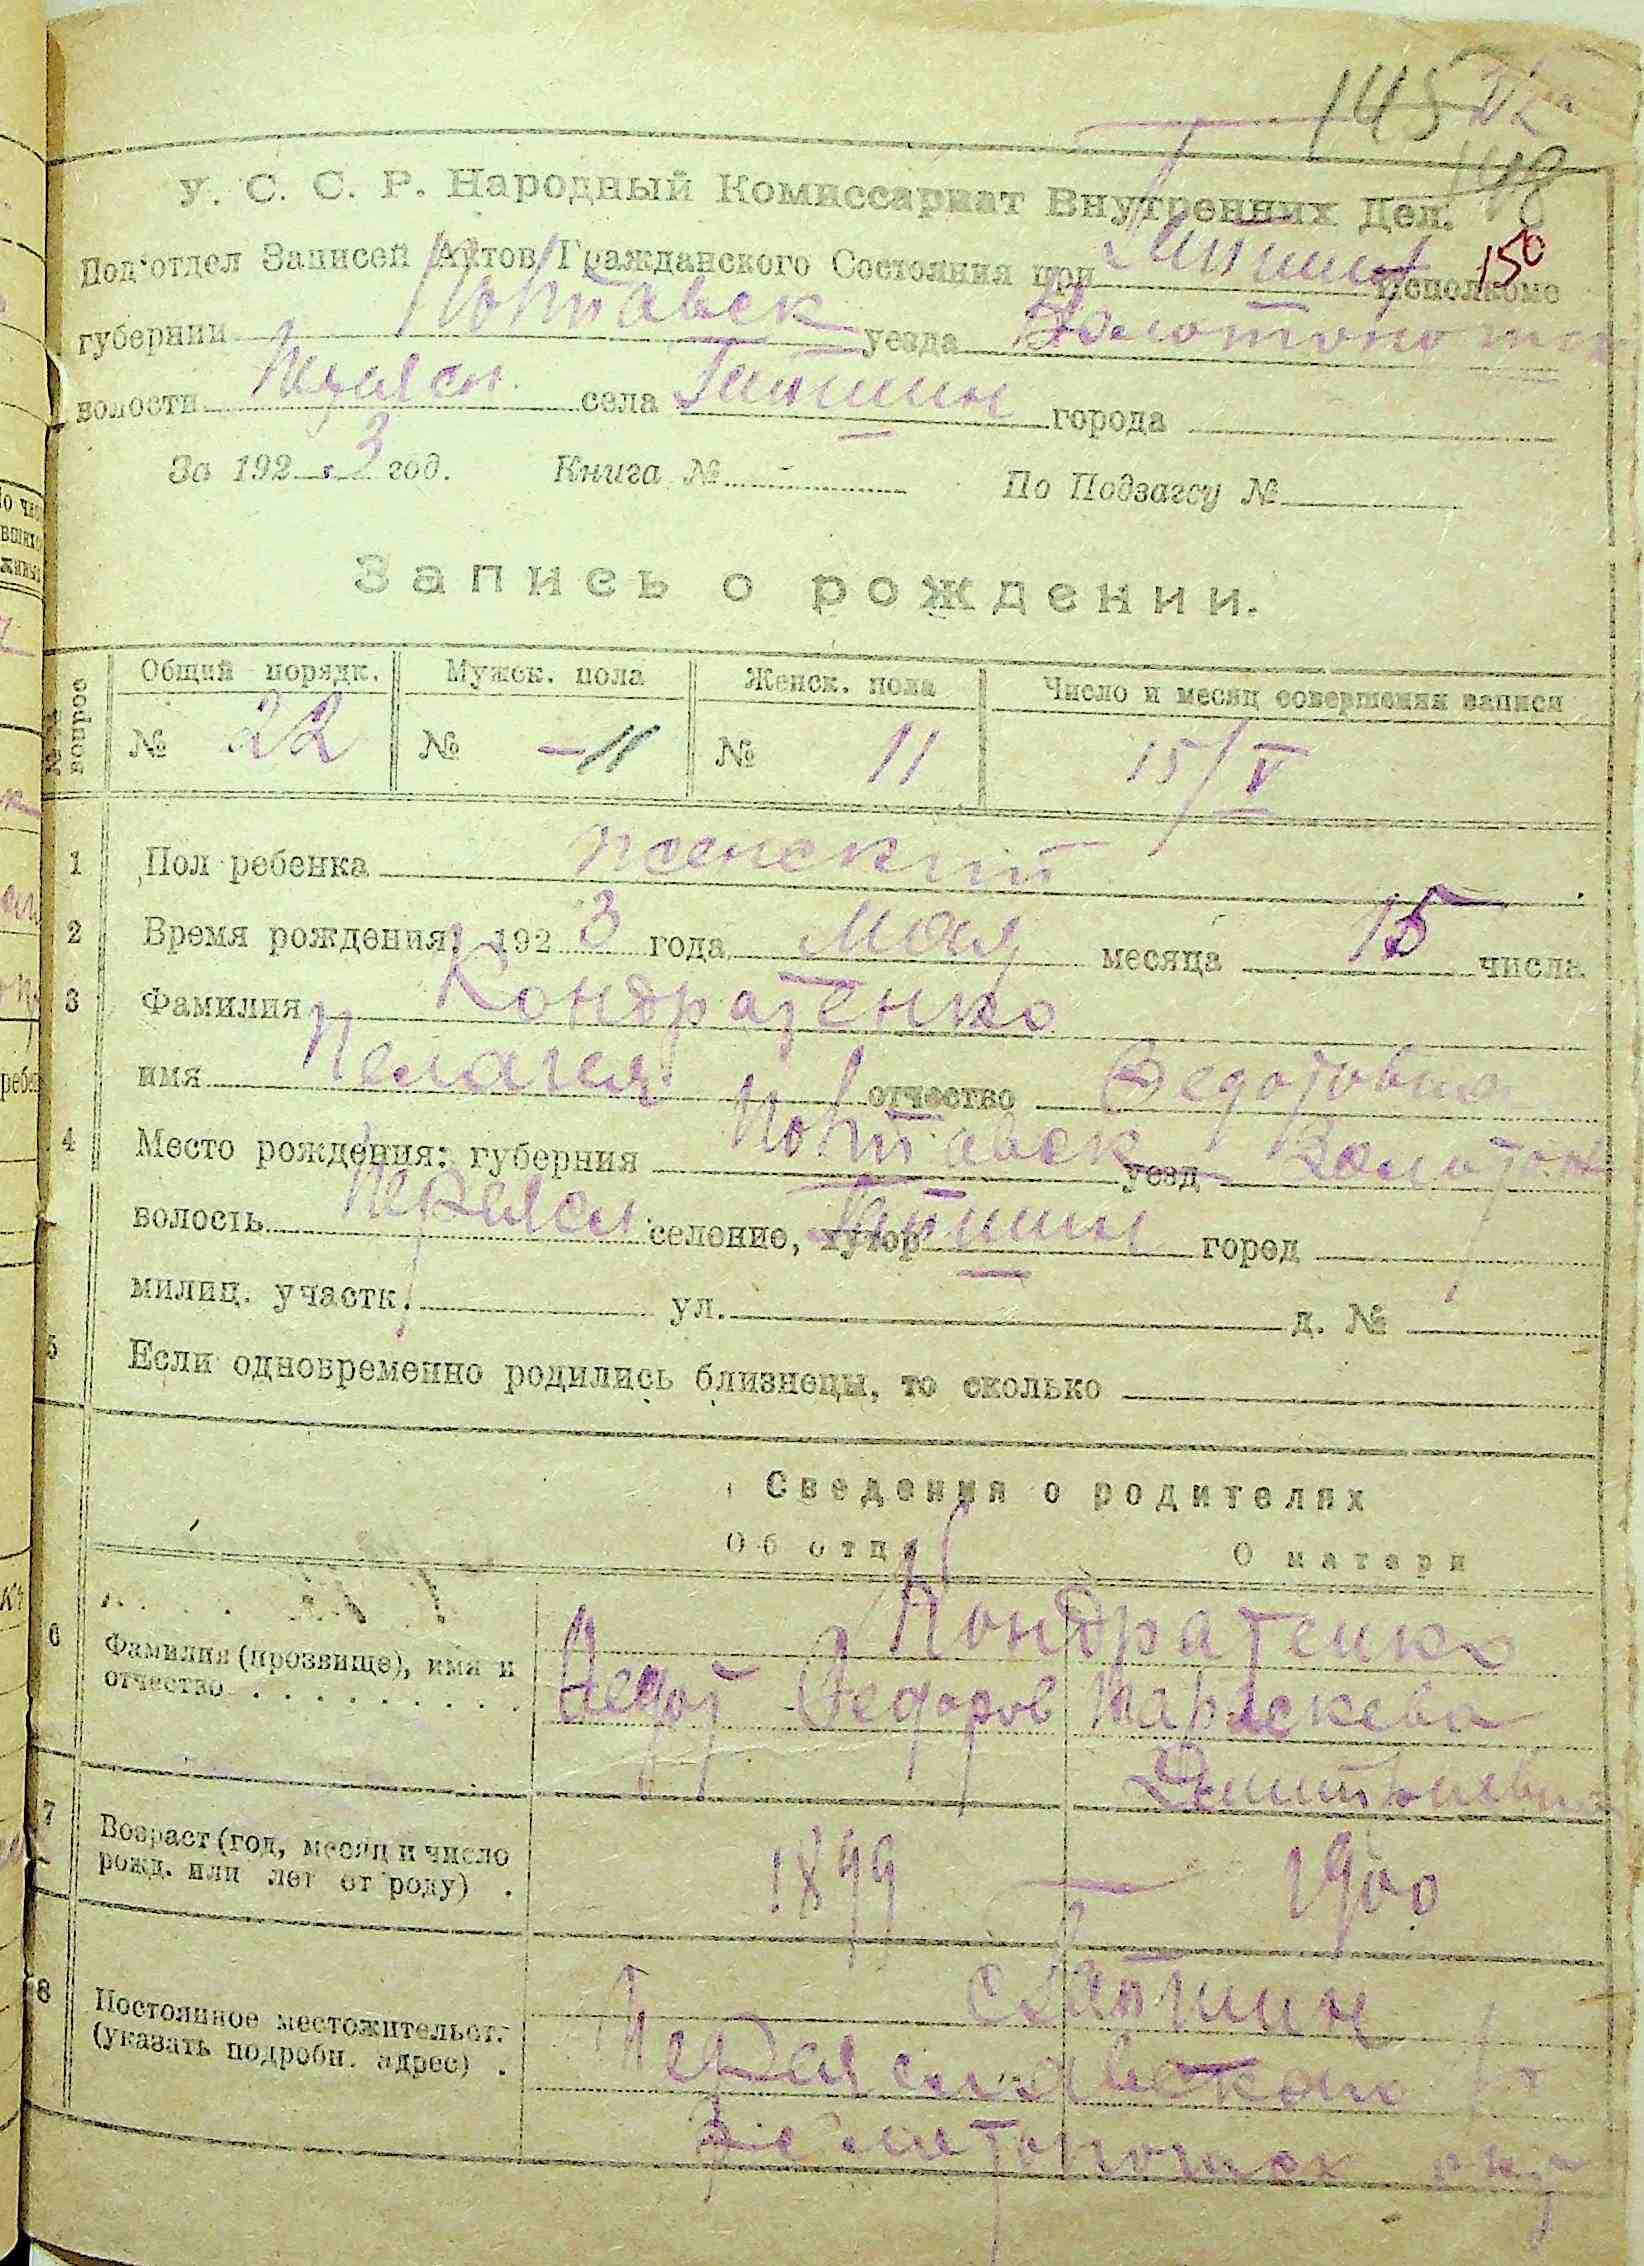 145
148
150
У. С. С. Р. Народный Комиссариат Внутренних Дел.
Под'отдел Записей Актов Гражданского Состояния при Гапшин Исполкоме
губернии Полтавск уезда Золотонош
волости Переясл. села Гапшин города
За 192 3 год. Книга № По Подзагсу №
Запись о рождении.
№№ вопрос
Общий порядк. Мужск. пола Женск. пола Число и месяц совершения записи
№ 22 № -11 № 11 15/V
1 Пол ребенка женский
2 Время рождения: 192 3 года Мая месяца 15 числа
3 Фамилия Кондратенко
имя Пелагея отчество Федотовна
4 Место рождения: губерния Полтавск уезд Золотон
волость Переясл. селение, хутор Гапшин город
милиц. участк. ул. д. №
5 Если одновременно родились близнецы, то сколько
Сведения о родителях
Об отце О матери
Кондратенко
6 Фамилия (прозвище), имя и отчество Федот Федоров Параскева
Дмитриевна
7 Возраст (год, месяц и число рожд. или лет от роду) 1899 1900
с Гапшин
8 Постоянное местожительст. (указать подробн. адрес) Переяславского
Золотоношск окр